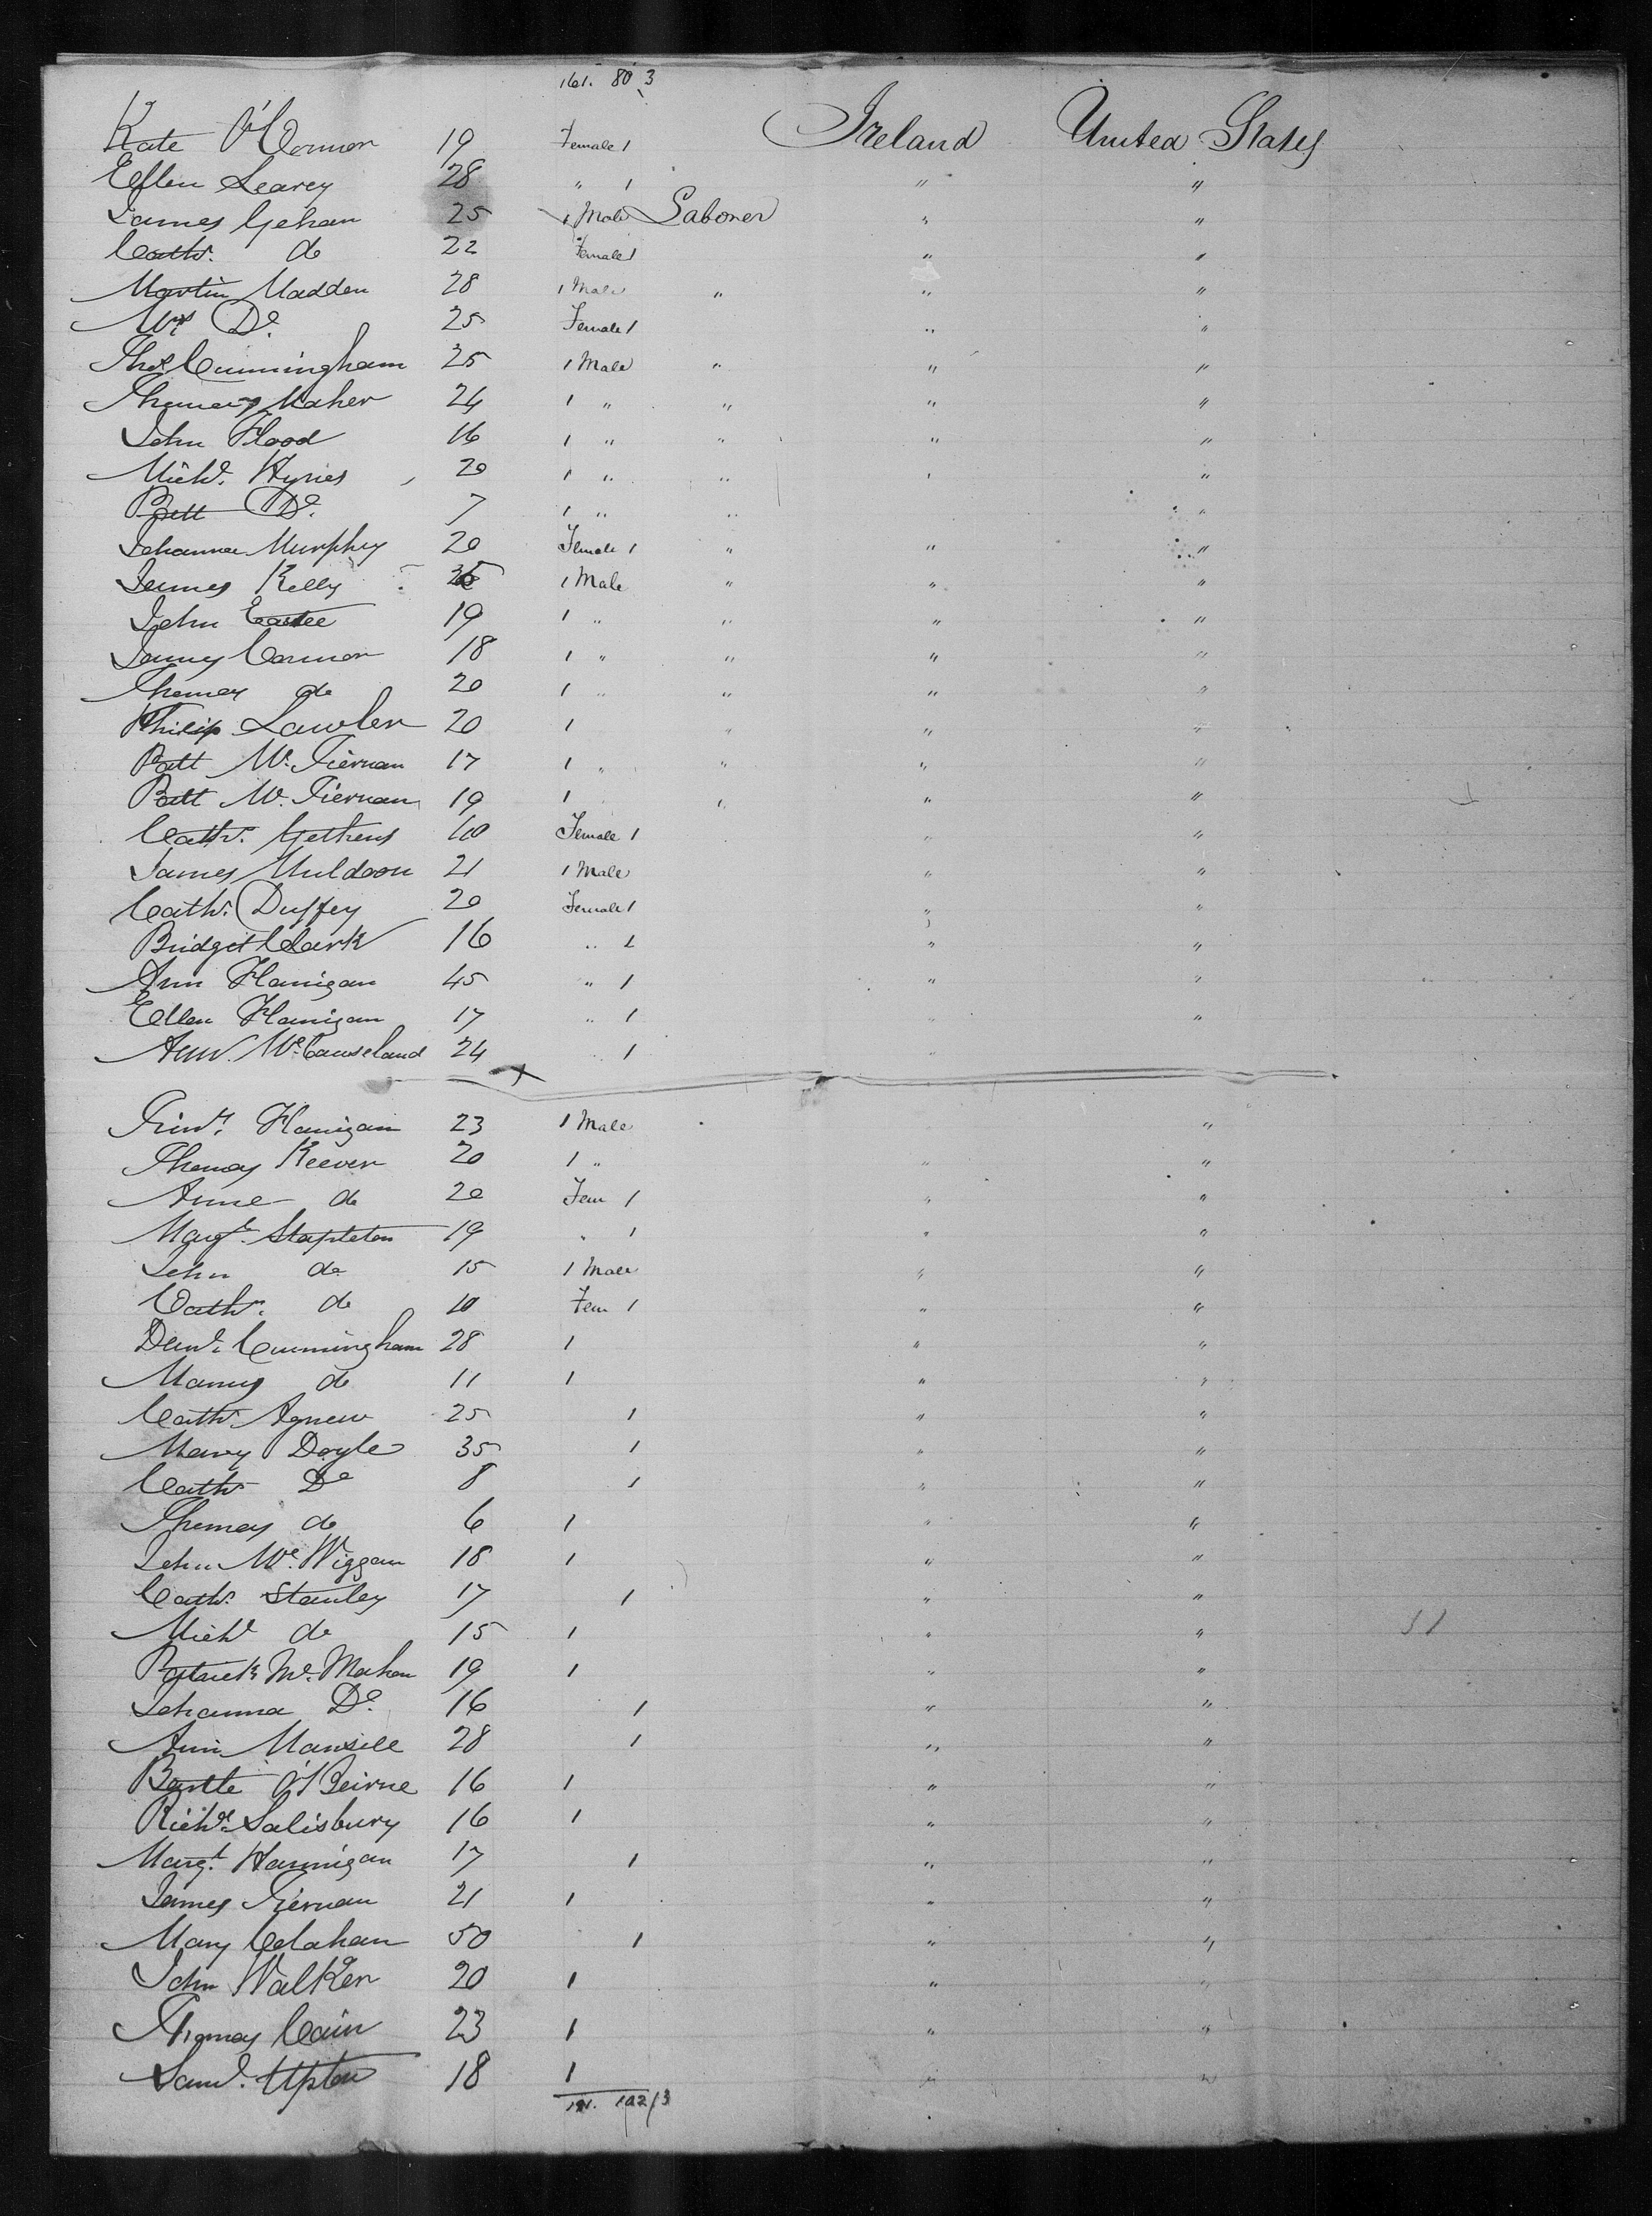 161. 80 3
Kate O'Connor 19 Female 1 Ireland United States
Ellen Learey 28 " 1 " "
James Gehan 25 1 Male Laborer " "
Cathe. do 22 Female 1 " "
Martin Madden 28 1 Male " " "
Mrs Do. 25 Female 1 " "
Thos Cunningham 25 1 Male " " "
Thomas Maher 24 1 " " " "
John Flood 16 1 " " " "
Michl. Hynes 20 1 " " " "
Patt Do. 7 1 " " "
Johanna Murphy 20 Female 1 " " "
James Kelly 1 Male " " "
John 19 1 " " " "
James Connor 18 1 " " " "
Thomas do 20 1 " " " "
Philip Lawler 20 1 " " "
Patt Mc. Tiernan 17 1 " " " "
Patt Mc. Tiernan 19 1 " " "
Cathe. Gethens 40 Female 1 " "
James Muldoon 21 1 Male " "
Cathe. Duffey 20 Female 1 " "
Bridget Clark 16 " 1 " "
Ann Flanigan 45 " 1 " "
Ellen Flanigan 17 " 1 " "
Ann. Mc. Causeland 24 " 1 "
Flanigan 23 1 Male "
Thomas Keever 20 1 " " "
Anne do 20 Fem 1 " "
Margt. Stapleton 19 " 1 " "
John do 15 1 Male " "
Cathe. do 10 Fem 1 " "
Cunningham 28 1 " "
Manus do 11 1 " "
Cathe. Agnew 25 1 " "
Mary Doyle 35 1 " "
Cathe Do 8 1 " "
Thomas do 6 1 " "
John Mc. Wiggan 18 1 " "
Cathe. Stanley 17 1 " "
Michl do 15 1 " "
Patrick Mc. Mahon 19 1 " "
Johanna Do. 16 1 " "
Ann Mansell 28 1 " "
Bartle O'Beirne 16 1 " "
Richd. Salisbury 16 1 " "
Margt. Hannigan 17 1 " "
James Tiernan 21 1 " "
Mary Calahan 50 1 " "
John Walker 20 1 " "
Thomas Cain 23 1 " "
Saml. Upton 18 1 " "
102/3